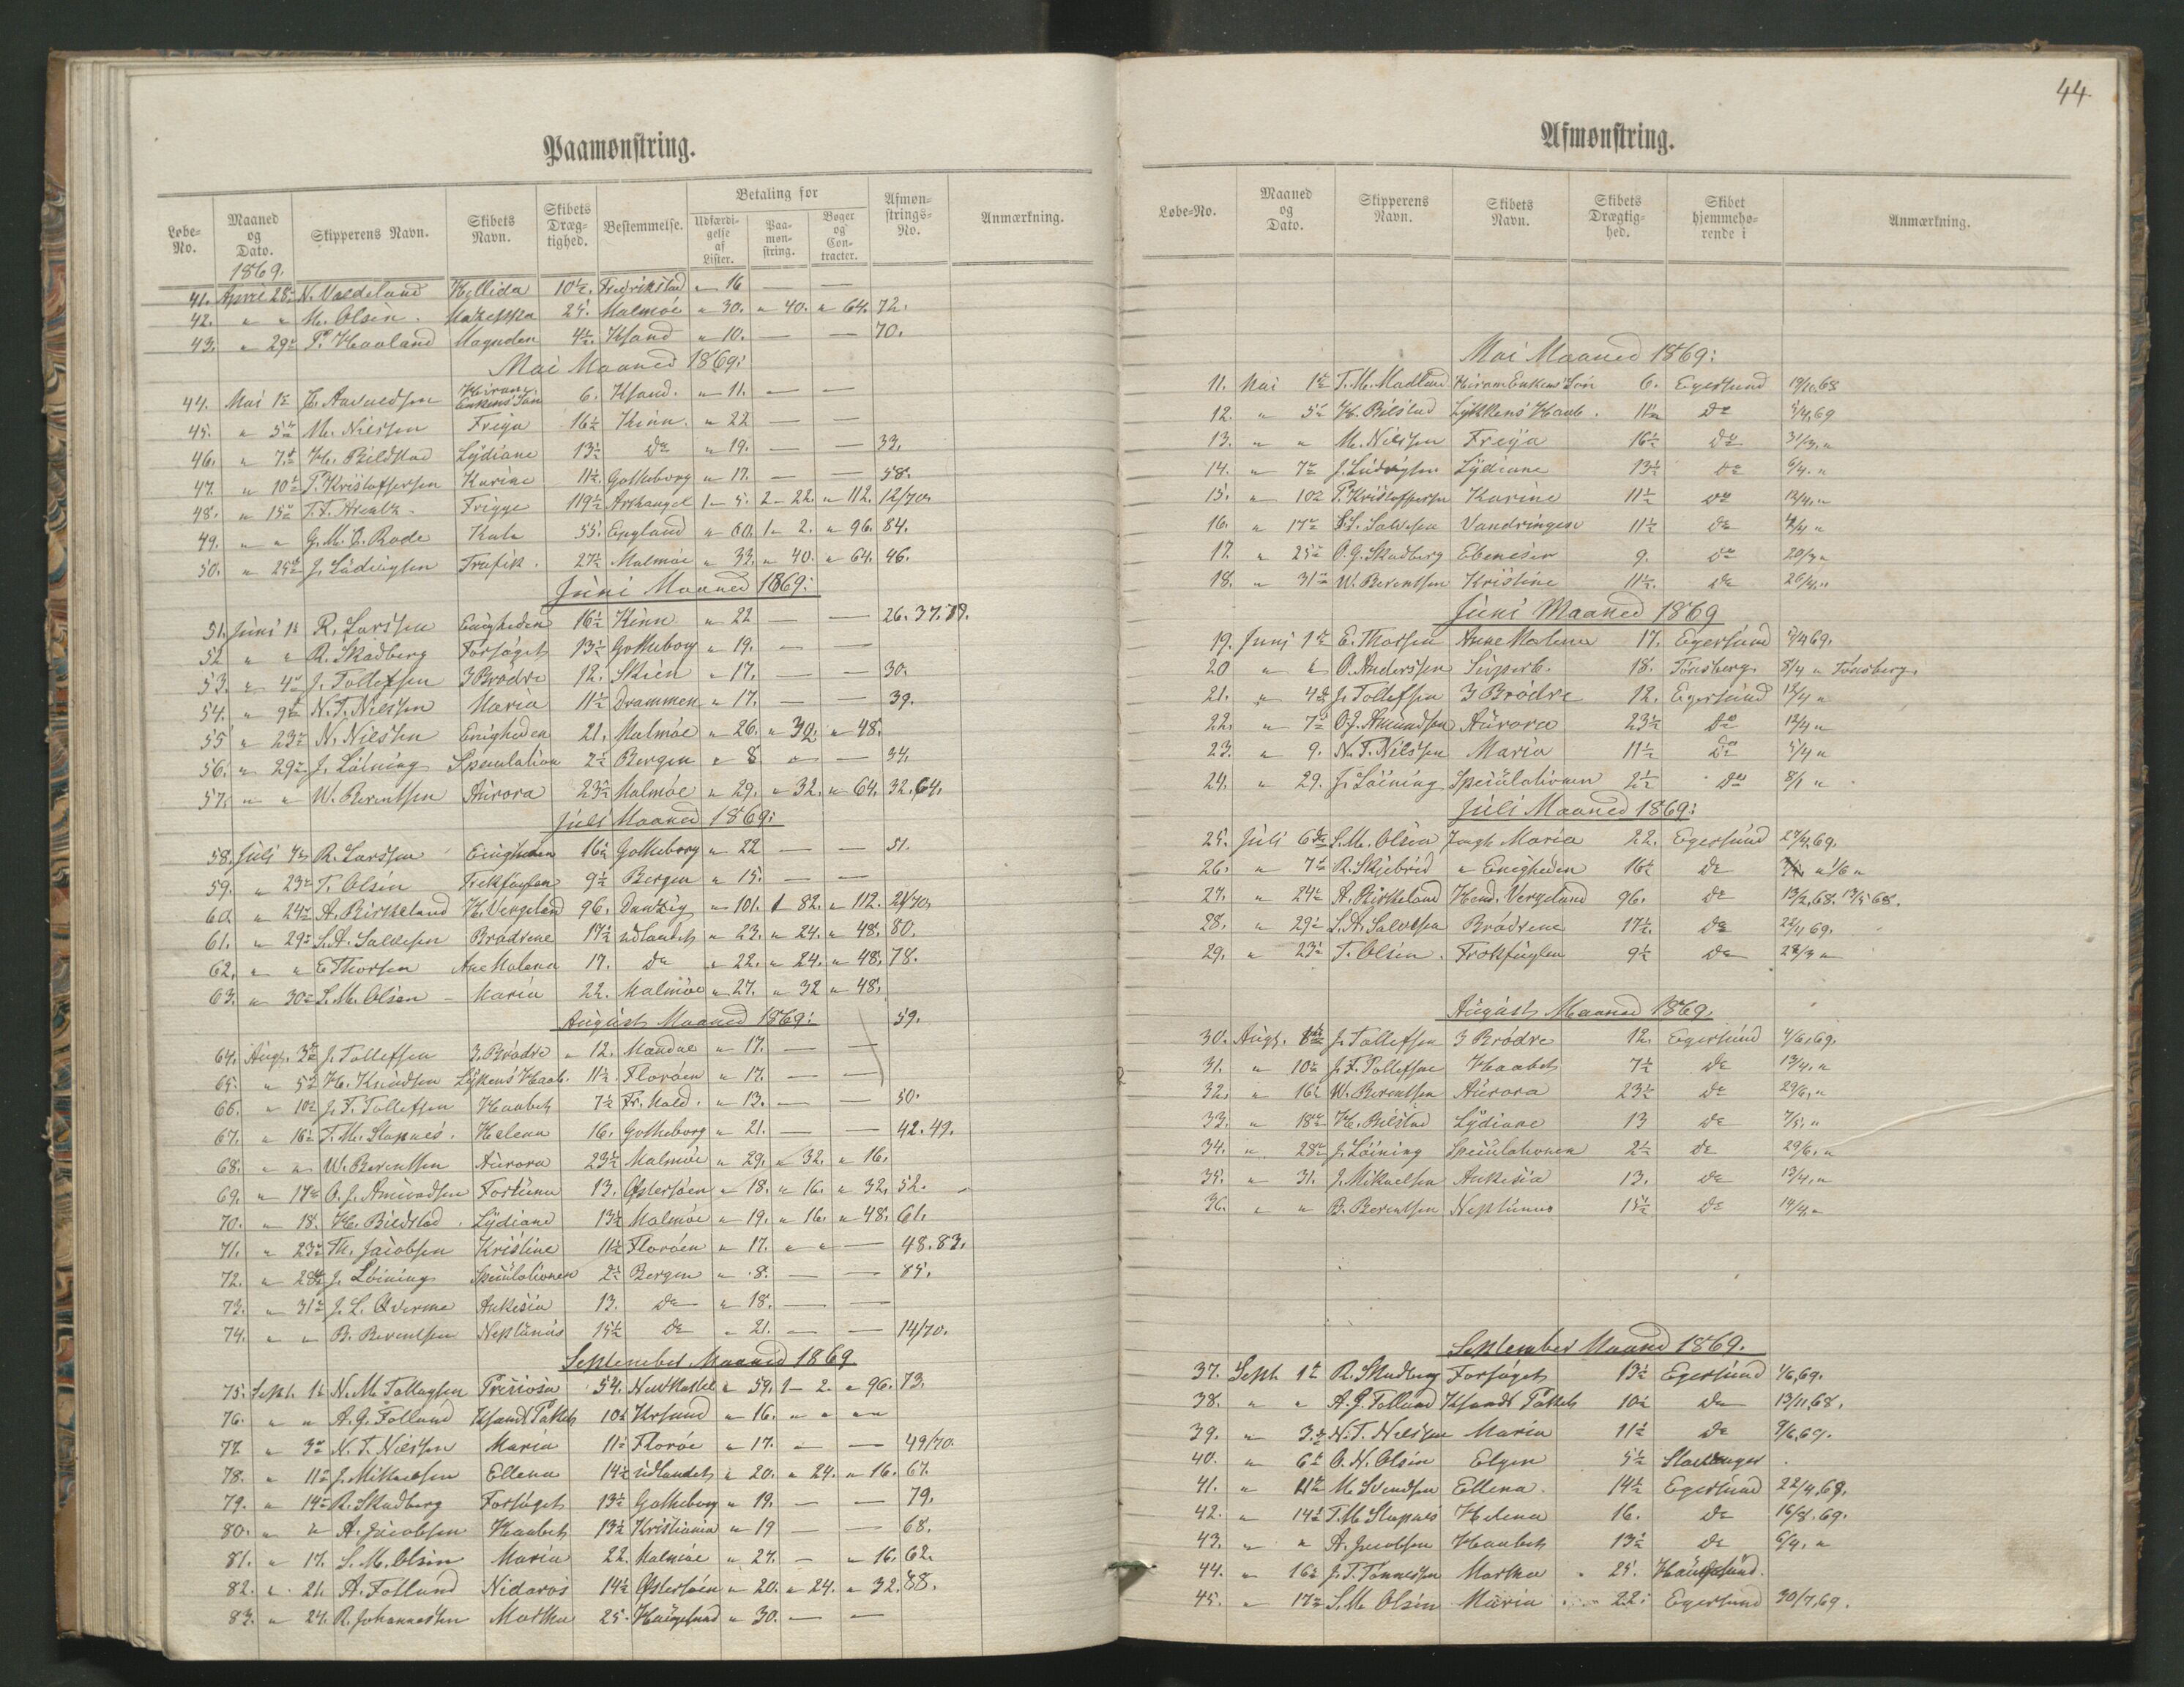 Paamønstring.
Løbe-No. Maaned og Dato. Skipperens Navn. Skibets Navn. Skibets Dræg-tighed. Bestemmelse. Betaling for Udfærdi-gelse af Lister. Paa-møn-string. Bøger og Con-tracter. Afmøn-strings-No. Anmærkning.
1869.
41. April 28 N. Valdeland Hellida 10½ Fredrikstad " 16 — —
42. " " M. Olsen. Mazeppa 25. Malmöe " 30. " 40. " 64. 72.
43. " 29 P. Haaland Magnden 4½ Khsand " 10. — — 70.
Mai Maaned 1869:
44. Mai 1 E. Aavaldsen Hiram Enkens Søn 6. Khsand. " 11. — —
45. " 5 M. Nilssen Freya 16½ Kinn. " 22 —
46. " 7 H. Bildstad Lydiane 13½ do " 19. — — 33.
47. " 10 P. Kristoffersen Karine 11½ Gotheborg " 17. — — 58.
48. " 15 Frigge 119½ Arkangel 1 - 5. 2 - 22. " 112. 12/70.
49. " " G. M. Rode Kala 55. England " 60. 1 - 2. " 96. 84.
50. " 25 J. Ludvigsen Trafik. 27½ Malmöe " 33. " 40. " 64. 46.
Juni Maaned 1869:
51. Juni 1 R. Larssen Enigheden 16½ Kinn " 22 — — 26. 37.
52 " " R. Skadberg Forsøget 13½ Gotheborg " 19. — —
53. " 4 J. Tollefsen 3 Brødre 12. Skien " 17. — — 30.
54. " 9 N. T. Nilssen Maria 11½ Drammen " 17. — — 39.
55 " 23 N. Nilssen Enigheden 21. Malmöe " 26. " 32. " 48.
56. " 29 J. Løining Speculation 2½ Bergen " 8 " — 34.
57. " " W. Berentsen Aurora 23½ Malmöe " 29. " 32. " 64. 32. 64.
Juli Maaned 1869:
58. Juli 7 R. Larssen Enigheden 16½ Gotheborg " 22 — — 51.
59. " 23 T. Olsen Trækfuglen 9½ Bergen " 15. — —
60. " 24 A. Birkeland H. Vergeland 96. Danzig " 101. 1 82. " 112. 21/70.
61. " 29 S. A. Salvesen Brødrene 17½ udlandet " 23. " 24. " 48. 80.
62. " " E Thorsen Ane Malena 17. do " 22. " 24. " 48. 78.
63. " 30 S. M. Olsen — Maria 22. Malmöe " 27. " 32 " 48.
August Maaned 1869: 59.
64. Augs. 3 J. Tollefsen 3. Brødre " 12. Mandal " 17. — —
65. " 5 H. Knudsen Lykens Haab. 11½ Florøen " 17. — —
66. " 10 J. T. Tollefsen Haabet 7½ Fr. Hald. " 13. — — 50.
67. " 16 T. M. Stapnes. Helena 16. Gotheborg " 21. — — 42. 49.
68. " " W. Berentsen Aurora 23½ Malmöe " 29. " 32. " 16.
69. " 17 O. J. Amundsen Fortuna 13. Østersøen " 18. " 16. " 32. 52.
70. " 18. H. Bildstad. Lydiane 13½ Malmöe " 19. " 16. " 48. 61.
71. " 23 Th. Jacobsen Kristine 11½ Florøen " 17. " " — 48. 83.
72. " 28 J. Løining Speculationen 2½ Bergen " 8. — — 85.
73. " 31 J. L. Qverme Ankesia 13. do " 18. — —
74. " " B. Berentsen Neptunus 15½ do " 21. — — 14/70.
September Maaned 1869
75. Sept. 1 N. M. Tollagsen Preciosa 54. Newkastel " 59. 1 - 2. " 96. 73.
76. " " A. G. Folland Khsands Paket 10½ Krsund " 16. " " "
77. " 3 N. T. Nilssen Maria 11½ Florøe " 17. — — 49/70.
78. " 11 J. Mikaelsen Ellena 14½ udlandet " 20. " 24. " 16. 67.
79. " 14 R. Skadberg Forsøget 13½ Gotheborg " 19. — — 79.
80. " " A. Jacobsen Haabet 13½ Kristiania " 19 — — 68.
81. " 17. S. M. Olsen Maria 22. Malmöe " 27. — " 16. 62.
82. " 21. A. Folland Nidaros 14½ Østersøen " 20. " 24. " 32. 88.
83. " 27. R. Johannessen Martha 25. Haugesund " 30. — —
44
Afmønstring.
Løbe-No. Maaned og Dato. Skipperens Navn. Skibets Navn. Skibets Drægtig-hed. Skibet hjemmehø-rende i Anmærkning.
Mai Maaned 1869:
11. Mai 1 T. M. Madland Hiram Enkens Søn 6. Egersund 19/11.68
12. " 5 H. Bilstad Lykkens Haab. 11½ do 5/4.69
13. " " M. Nilssen Freya 16½ do 31/3. "
14. " 7 J. Ludvigsen Lydiane 13½ do 6/4. "
15. " 10 P. Kristoffersen Karine 11½ do 12/4. "
16. " 17 S. S. Salvesen Vandringen 11½ do
17. " 25 O. G. Skadberg Ebeneser 9. do 20/3 "
18. " 31 W. Berentsen Kristine 11½. do 26/4. "
Juni Maaned 1869
19. Juni 1 E. Thorsen Anne Malena 17. Egersund
20 " " O. Anderssen Superb. 18. Tönsberg. 8/4 " Tönsberg.
21. " 4 J. Tollefsen 3 Brødre 12. Egersund 12/4 "
22. " 7 O. J. Amundsen Aurora 23½ do 12/4 "
23. " 9. N. T. Nilssen Maria 11½ do 5/4 "
24. " 29. J. Løining Speculationen 2½ do 8/1 "
Juli Maaned 1869:
25. Juli 6 S. M. Olsen Jagt Maria 22. Egersund
26. " 7 R. Skjebrid " Enigheden 16½ do 1/6 "
27. " 24 A. Birkeland Hend. Vergeland 96. do 13/2.68. 13/5 68.
28. " 29 S. A. Salvesen Brødrene 17½. do 22/4 69.
29. " 23 T. Olsen. Trækfuglen 9½ do 28/3 "
August Maaned 1869.
30. Augs. J. Tollefsen 3 Brødre 12. Egersund 4/6.69.
31. " 10 J. T. Tollefsen Haabet 7½ do 13/4. "
32. " 16 W. Berentsen Aurora 23½ do 29/6. "
33. " 18 H. Bilstad Lydiane 13 do 7/5. "
34. " 28 J. Løining Speculationen 2½ do 29/6. "
35. " 31. J. Mikaelsen Ankesia 13. do 13/4. "
36. " " B. Berentsen Neptunus 15½ do 14/4. "
September Maaned 1869.
37. Sept 1 R. Skadberg Forsøget 13½ Egersund 1/6.69.
38. " " A. G. Folland Khsands Paket 10½ do 13/11.68.
39. " 3. N. T. Nilssen Maria 11½ do 9/6.69.
40. " 6 O. N. Olsen Elgen 5½ Stavanger.
41. " 11 M. Svendsen Ellena. 14½ Egersund 22/4.69.
42. " 14 T. M. Stapnes Helena 16. do 16/8.69.
43. " " A. Jacobsen Haabet 13½ do 6/4. "
44. " 16 J. T. Tönnessen Martha " 25. Haugesund.
45. " 17 S. M. Olsen Maria " 22. Egersund 30/7.69.